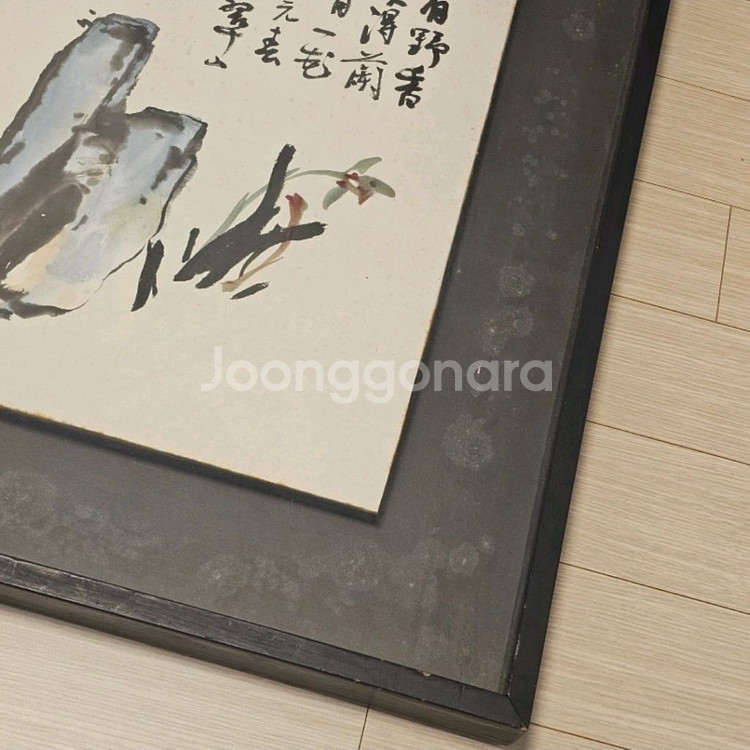 有野香
得蘭
一花
元春
翠山
Joonggonara